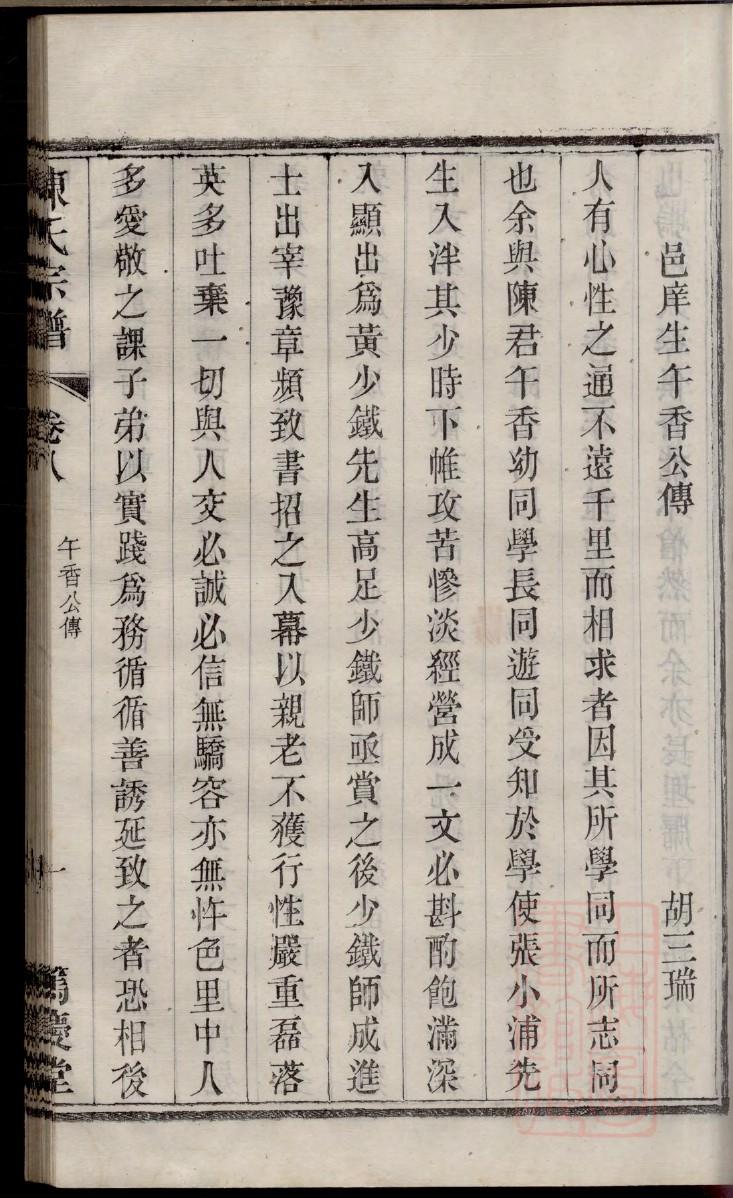 邑庠生午香公傳
胡三瑞
人有心性之通不遠千里而相求者因其所學同而所志同
也余與陳君午香幼同學長同遊同受知於學使張小浦先
生入泮其少時下帷攻苦慘淡經營成一文必斟酌飽滿深
入顯出爲黃少鐵先生高足少鐵師亟賞之後少鐵師成進
士出宰豫章頻致書招之入幕以親老不獲行性嚴重磊落
英多吐棄一切與人交必誠必信無驕容亦無忤色里中人
多愛敬之課子弟以實踐爲務循循善誘延致之者恐相後
陳氏宗譜
卷八
午香公傳
一
篤慶堂